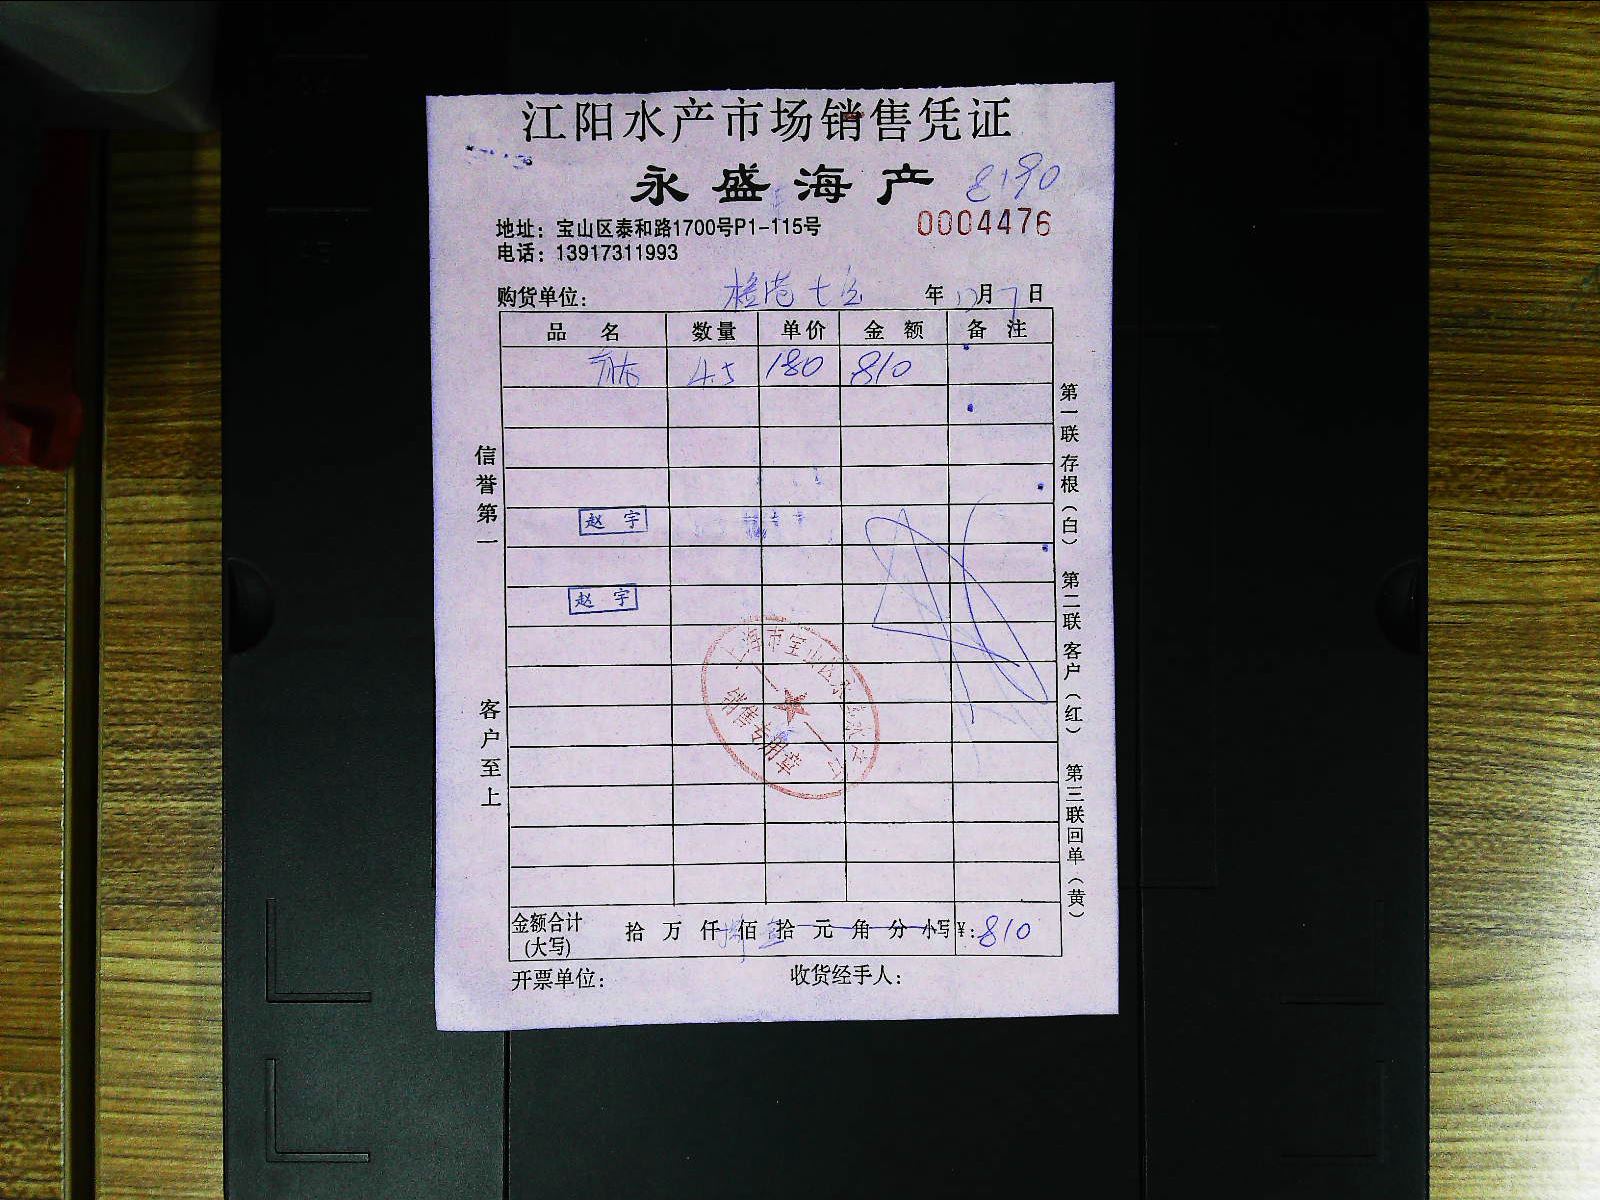 江阳水产市场销售凭证
永盛海产
8190
0004476
地址：宝山区泰和路1700号P1-115号
电话：13917311993
购货单位： 年 12月 7日
品 名 数量 单价 金 额 备 注
4.5 180 810
信誉第一
客户至上
赵 宇
赵 宇
上海市宝山区
销售专用章
第一联存根（白）
第二联客户（红）
第三联回单（黄）
金额合计（大写） 拾 万 仟 佰 拾 元 角 分 小写¥：810
开票单位： 收货经手人：